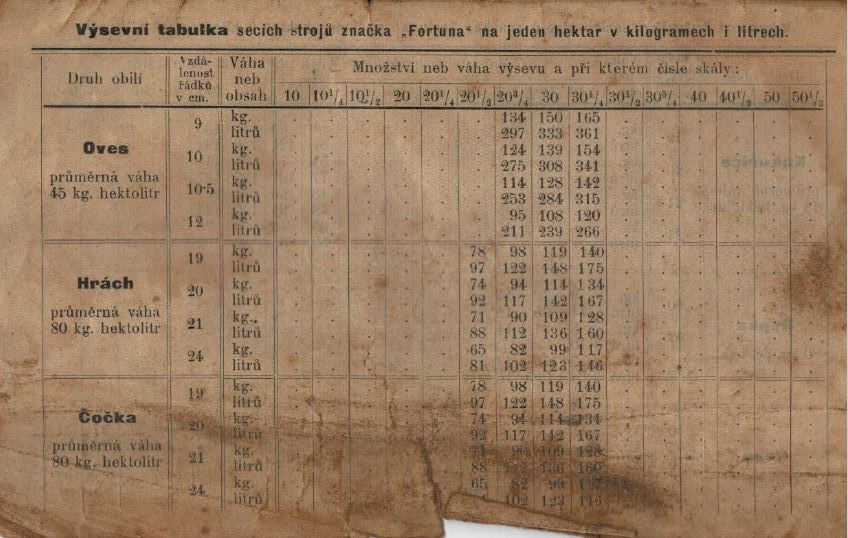 Výsevní tabulka secích strojů značka „Fortuna“ na jeden hektar v kilogramech i litrech.
Druh obilí | Vzdálenost řádků v cm. | Váha neb obsah | Množství neb váha výsevu a při kterém čísle skály:
10 | 10¹/₄ | 10¹/₂ | 20 | 20¹/₄ | 20¹/₂ | 20³/₄ | 30 | 30¹/₄ | 30¹/₂ | 30³/₄ | 40 | 40¹/₂ | 50 | 50¹/₂
Oves
průměrná váha
45 kg. hektolitr
9 kg. 134 150 165
litrů 297 333 361
10 kg. 124 139 154
litrů 275 308 341
10·5 kg. 114 128 142
litrů 253 284 315
12 kg. 95 108 120
litrů 211 239 266
Hrách
průměrná váha
80 kg. hektolitr
19 kg. 78 98 119 140
litrů 97 122 148 175
20 kg. 74 94 114 134
litrů 92 117 142 167
21 kg. 71 90 109 128
litrů 88 112 136 160
24 kg. 65 82 99 117
litrů 81 102 123 146
Čočka
průměrná váha
80 kg. hektolitr
19 kg. 78 98 119 140
litrů 97 122 148 175
20 kg. 74 94 114 134
litrů 92 117 142 167
21 kg. 71 90 109 128
litrů 88 136 160
24 kg. 65 82 99
litrů 102 123 146